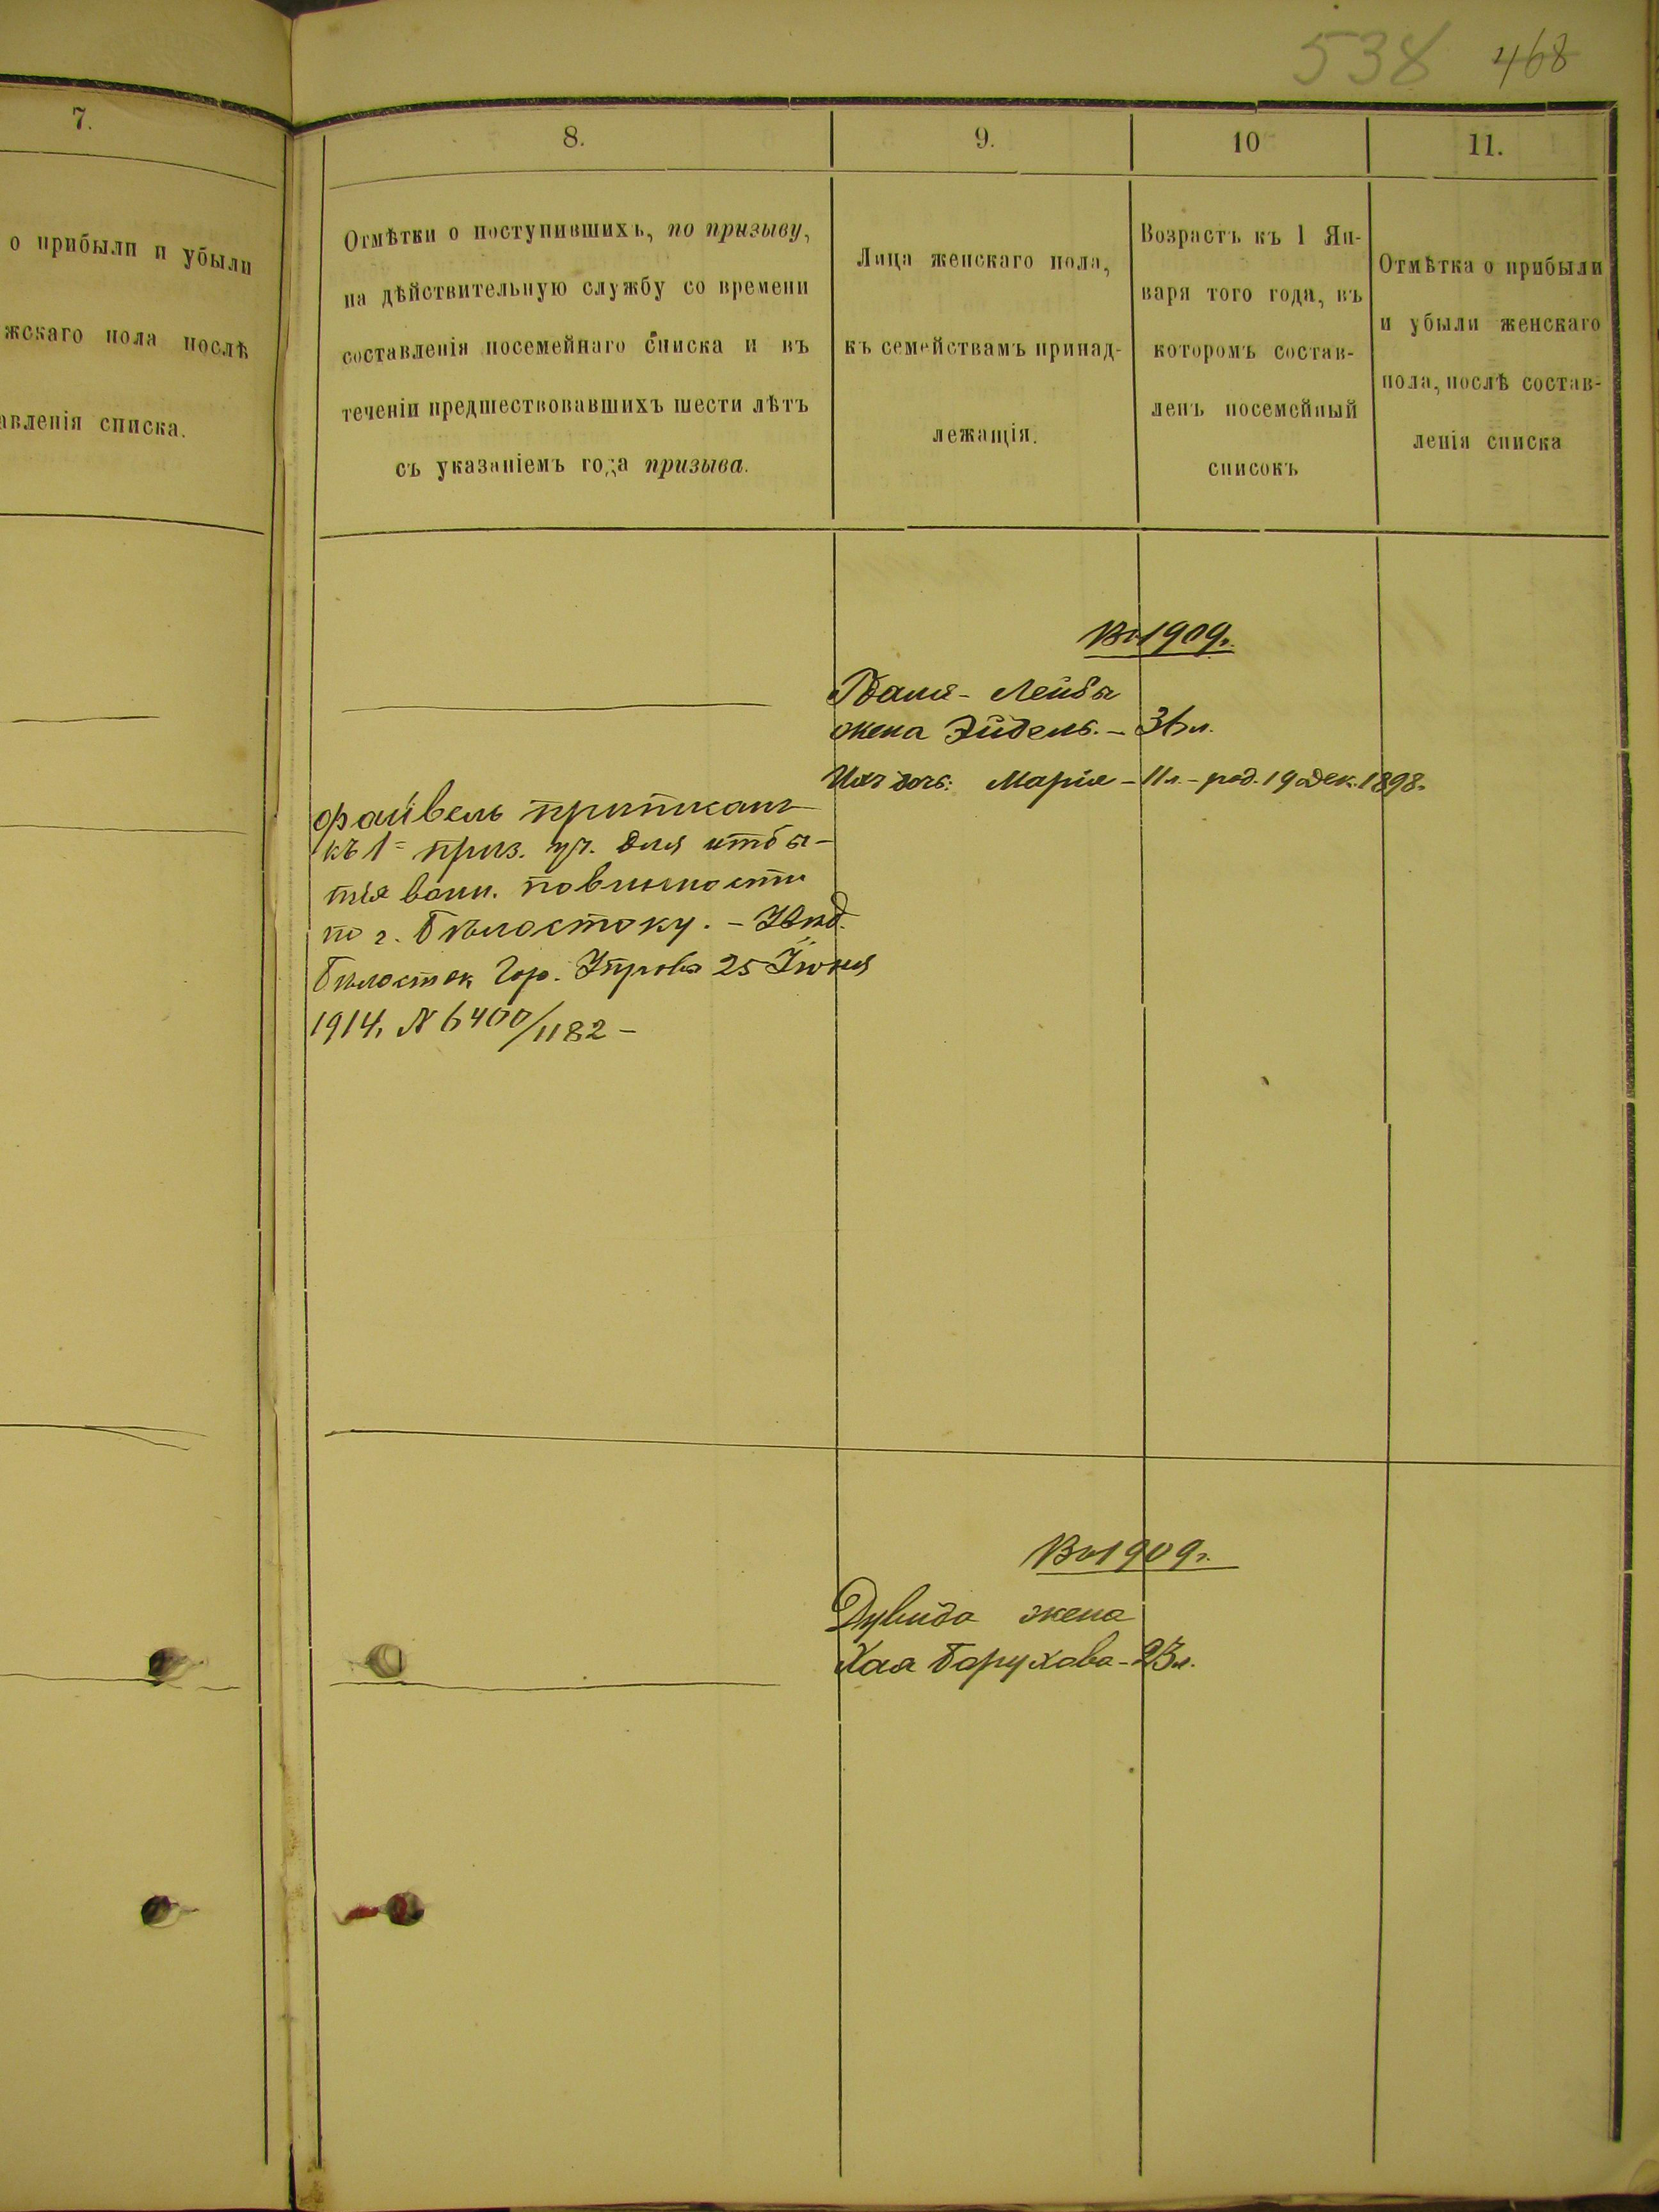 538 468
7.
о прибыли и убыли
жскаго пола послѣ
авленія списка.
8.
Отмѣтки о поступившихъ, по призыву,
на дѣйствительную службу со времени
составленія посемейнаго списка и въ
теченіи предшествовавшихъ шести лѣтъ
съ указаніемъ года призыва.
9.
Лица женскаго пола,
къ семействамъ принад-
лежащія.
10
Возрастъ къ 1 Ян-
варя того года, въ
которомъ состав-
ленъ посемейный
списокъ
11.
Отмѣтка о прибыли
и убыли женскаго
пола, послѣ состав-
ленія списка
Въ 1909г.
Лейбы
жена Эйдель. - 36 л.
Ихъ дочь: Марія - 11 л. - род. 19 дек. 1898.
Файвель приписанъ
къ 1= приз. уч. для отбы-
тія воин. повинности
по г. Бѣлостоку. -
Бѣлосток Гор. Управы 25 Іюня
1914, N 6400/1182 -
Въ 1909г.
Дувида жена
Хая Борухова - 23 л.